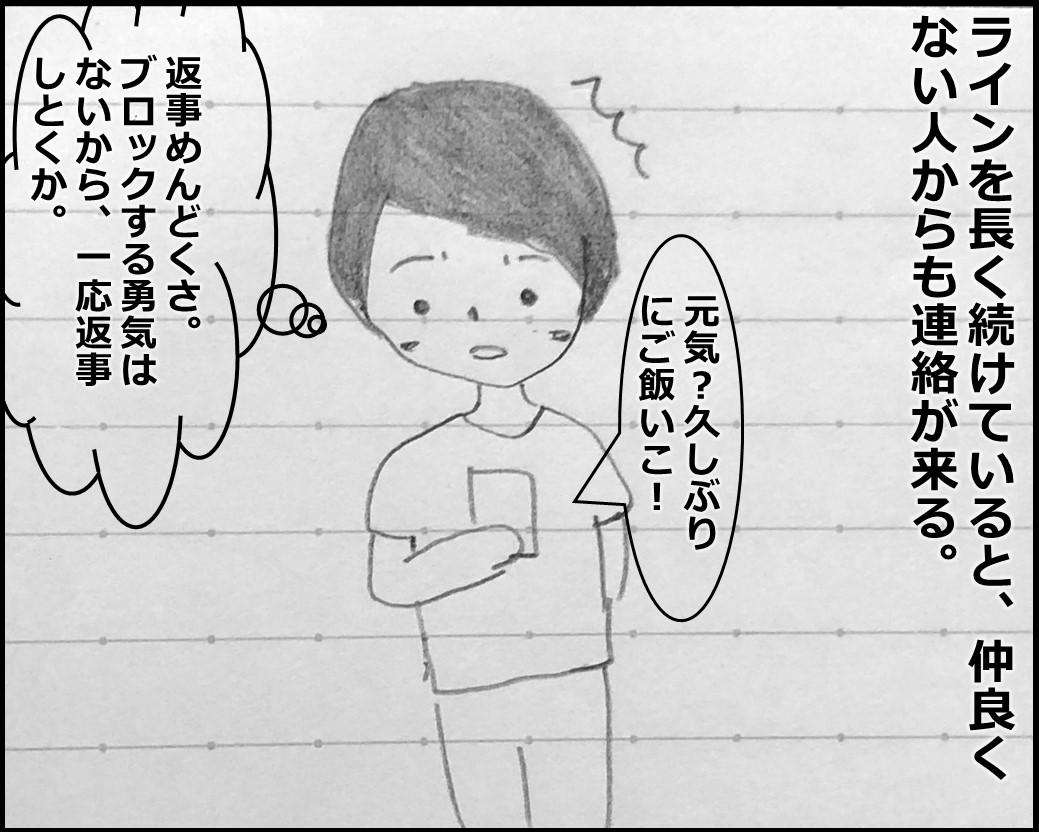 ラインを長く続けていると、仲良く
ない人からも連絡が来る。
元気？久しぶり
にご飯いこ！
返事めんどくさ。
ブロックする勇気は
ないから、一応返事
しとくか。